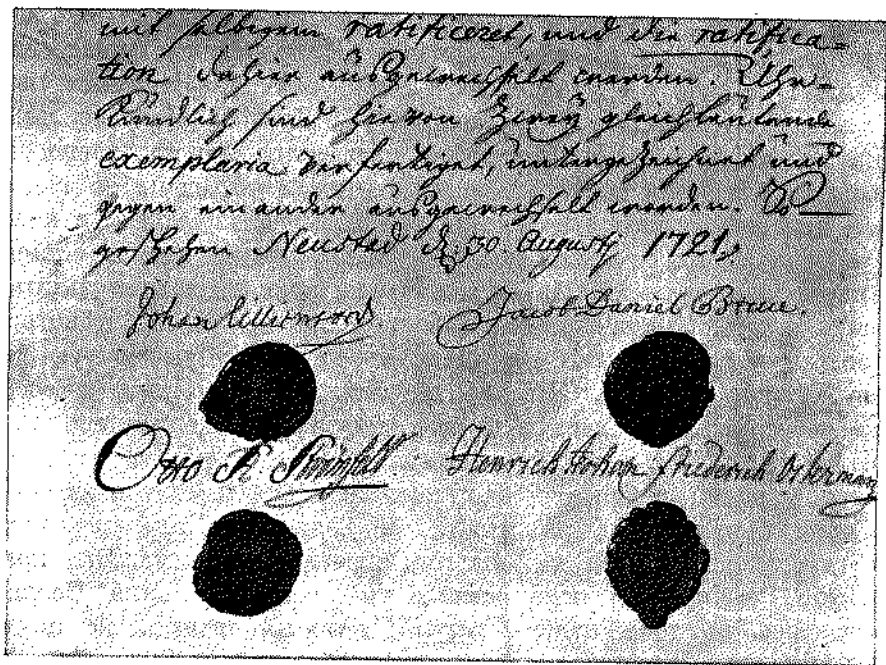 mit selbigem ratificeret, und die ratifica=
tion dahier ausgewechselt werden. Uhr=
kundlich sind hievon zweÿ gleichlautende
exemplaria verfertiget, untergezeichnet und
gegen einander ausgewechselt worden. So
geschehen Neustad d. 30 Augustj 1721,
Johan Lillienstedt Jacob Daniel Bruce.
Otto R Strömfelt. Henrich Johan Friederich Osterman